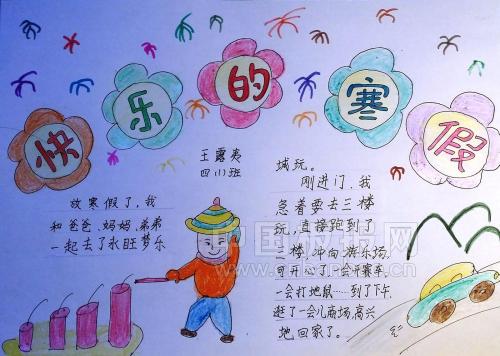 快乐的寒假
王露夷
四(1)班
放寒假了，我
和爸爸、妈妈、弟弟
一起去了永旺梦乐
城玩。
刚进门，我
急着要去三楼
玩，直接跑到了
三楼，冲向游乐场，
可开心了，一会开赛车，
一会打地鼠……到了下午，
逛了一会儿商场，高兴
地回家了。